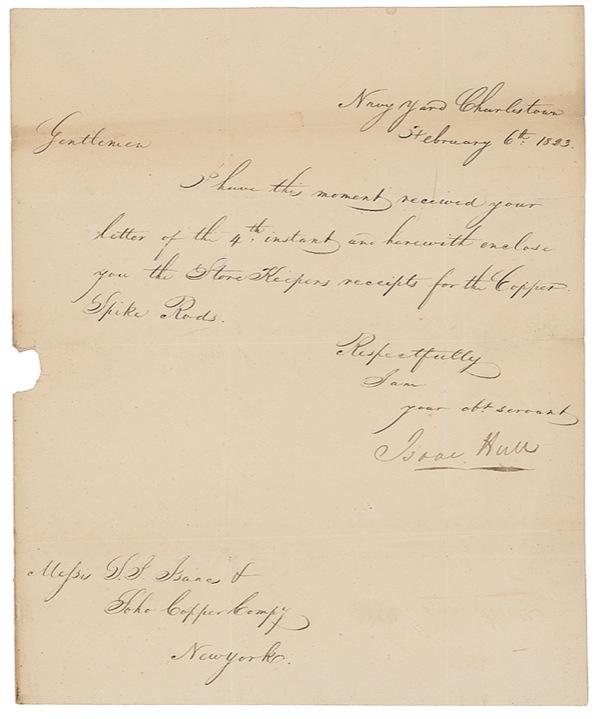 Navy Yard Charlestown
February 6th. 1823.
Gentlemen
I have this moment received your
letter of the 4th. instant and herewith enclose
you the Store Keepers receipts for the Copper
Spike Rods.
Respectfully
I am
your obt servant
Isaac Hull
Messrs S. I. Isaacs &
Soho Copper Compy
Newyork.